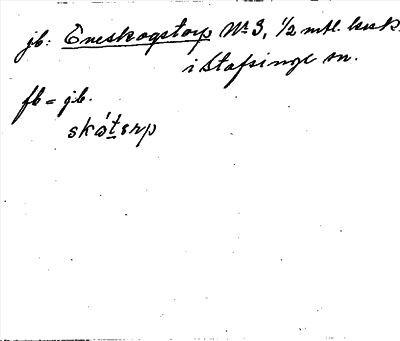 jb: Eneskogstorp No 3, 1/2 mtl. kusk.
i Stafsinge sn.
fb = jb.
skåtɛrp